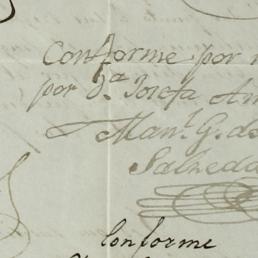 Conforme por
por d.ª Josefa An
Man.l G. de
Salzeda
Conforme